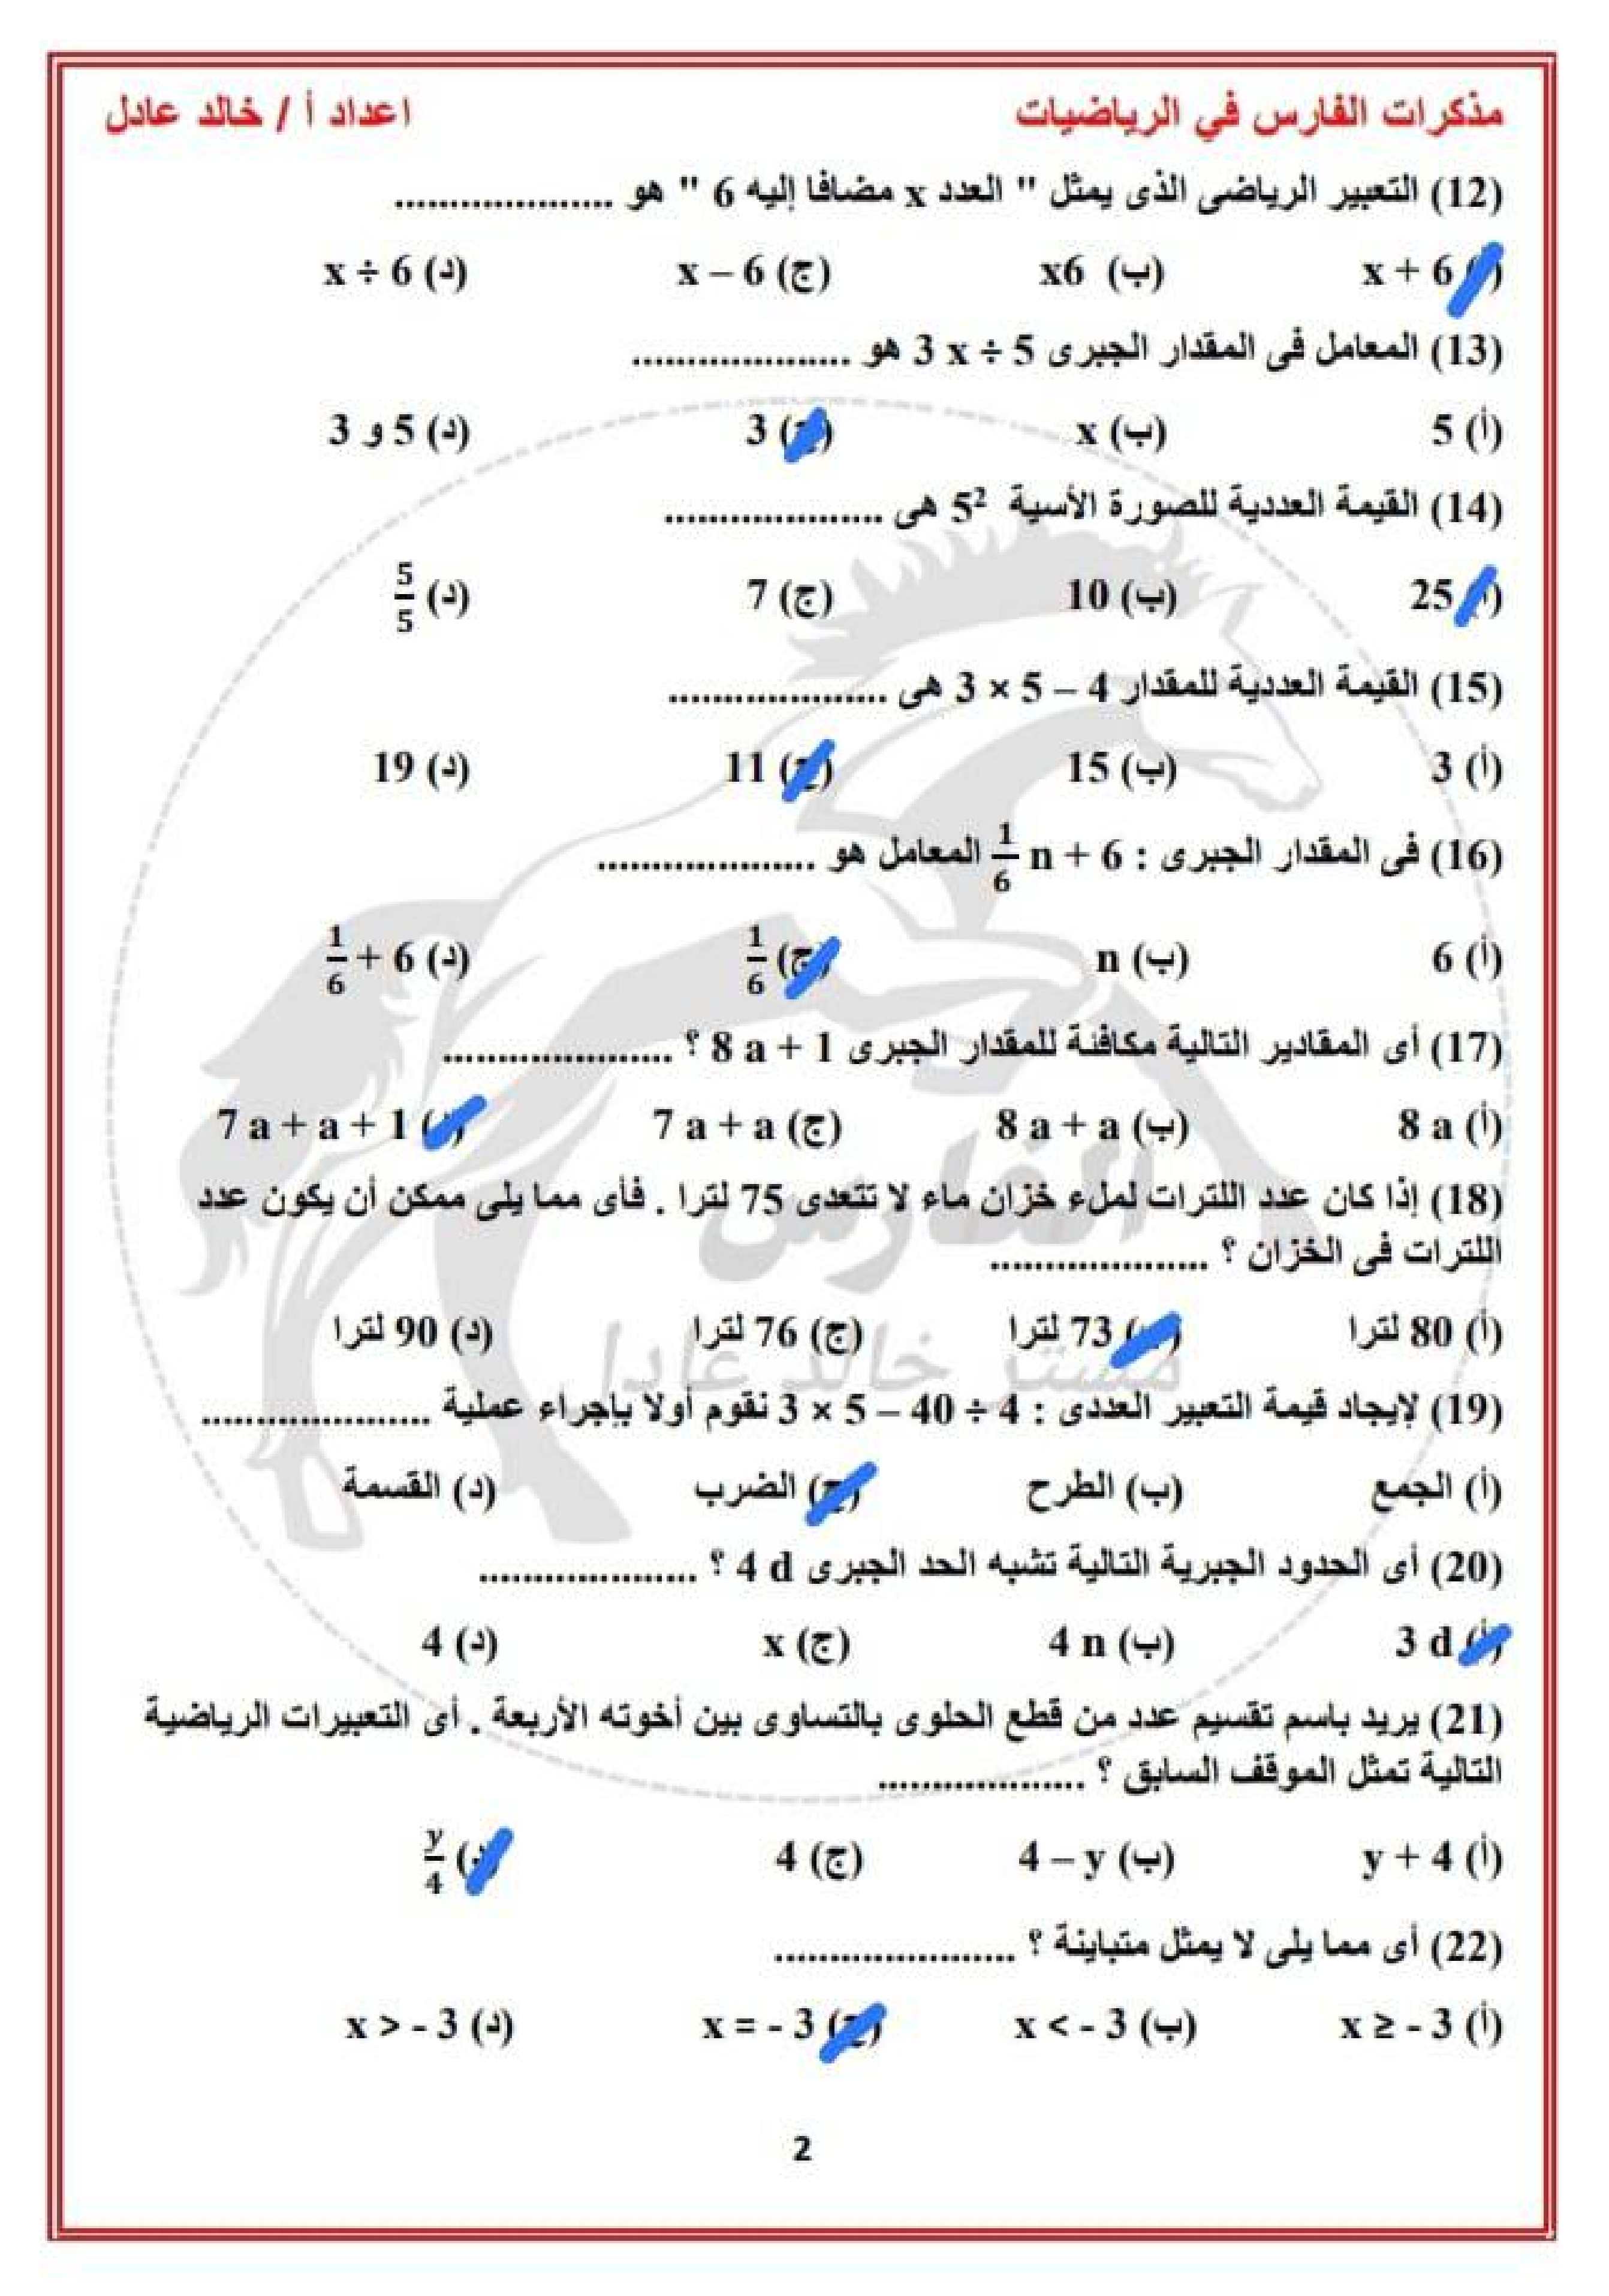 مذكرات الفارس في الرياضيات
اعداد أ / خالد عادل
(12) التعبير الرياضى الذى يمثل " العدد x مضافا إليه 6 " هو ....................
x + 6 (ب) x6 (ج) x – 6 (د) x ÷ 6
(13) المعامل فى المقدار الجبرى 3 x ÷ 5 هو ....................
(أ) 5 (ب) x (ج) 3 (د) 5 و 3
(14) القيمة العددية للصورة الأسية 5² هى ....................
(أ) 25 (ب) 10 (ج) 7 (د) 5/5
(15) القيمة العددية للمقدار 3 × 5 – 4 هى ....................
(أ) 3 (ب) 15 (ج) 11 (د) 19
(16) فى المقدار الجبرى : 1/6 n + 6 المعامل هو ....................
(أ) 6 (ب) n (ج) 1/6 (د) 1/6 + 6
(17) أى المقادير التالية مكافئة للمقدار الجبرى 8 a + 1 ؟ ....................
(أ) 8 a (ب) 8 a + a (ج) 7 a + a (د) 7 a + a + 1
(18) إذا كان عدد اللترات لملء خزان ماء لا تتعدى 75 لترا . فأى مما يلى ممكن أن يكون عدد
اللترات فى الخزان ؟ ....................
(أ) 80 لترا (ب) 73 لترا (ج) 76 لترا (د) 90 لترا
(19) لإيجاد قيمة التعبير العددى : 3 × 5 – 40 ÷ 4 نقوم أولا بإجراء عملية ....................
(أ) الجمع (ب) الطرح (ج) الضرب (د) القسمة
(20) أى الحدود الجبرية التالية تشبه الحد الجبرى 4 d ؟ ....................
(أ) 3 d (ب) 4 n (ج) x (د) 4
(21) يريد باسم تقسيم عدد من قطع الحلوى بالتساوى بين أخوته الأربعة . أى التعبيرات الرياضية
التالية تمثل الموقف السابق ؟ ....................
(أ) y + 4 (ب) 4 – y (ج) 4 (د) y/4
(22) أى مما يلى لا يمثل متباينة ؟ ....................
(أ) x ≥ - 3 (ب) x < - 3 (ج) x = - 3 (د) x > - 3
الفارس
مستر خالد عادل
2